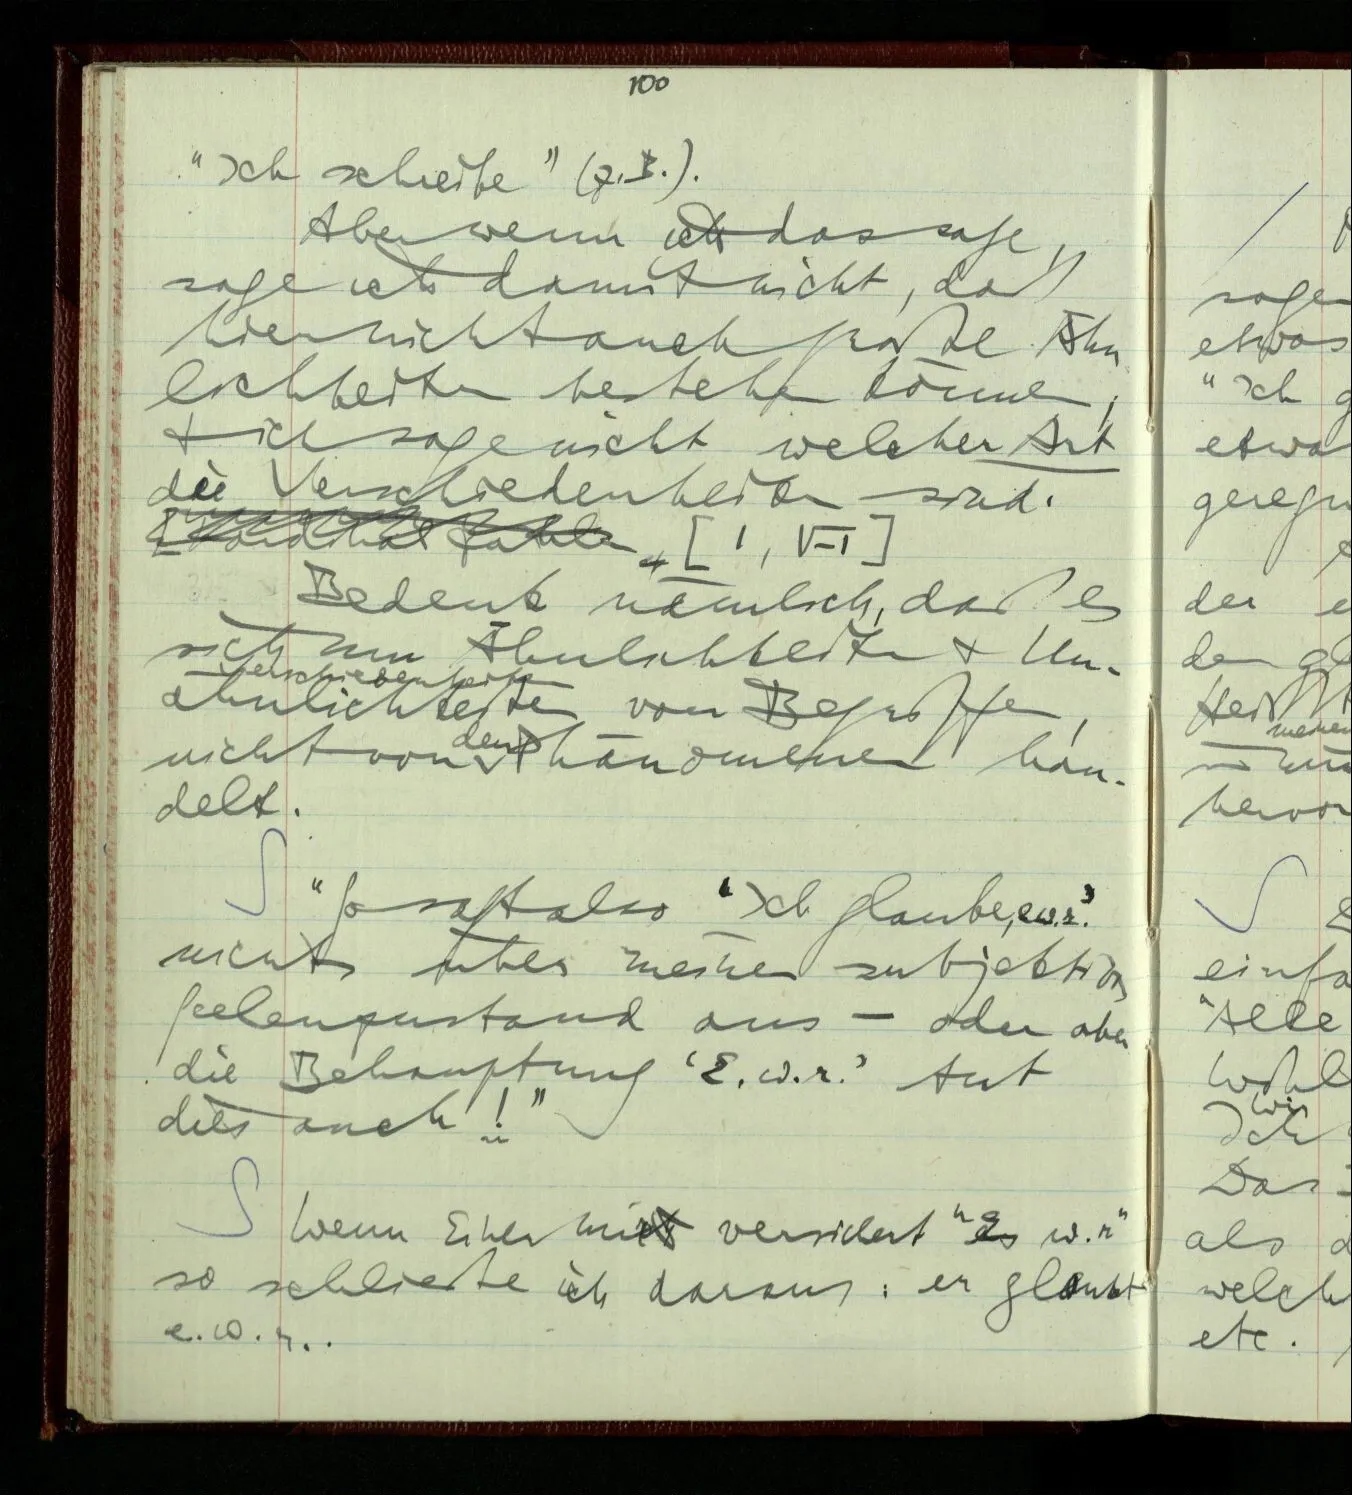 100
"Ich schreibe" (z.B.).
Aber wenn ich das sage,
sage ich damit nicht, daß
hier nicht auch große Ähn-
lichkeiten bestehen können,
& ich sage nicht welcher Art
die Verschiedenheiten sind.
[1, VI]
Bedenk nämlich, daß es
sich um Ähnlichkeiten & Un-
Verschiedenheiten
ähnlichkeiten von Begriffen,
den
nicht von Phänomenen han-
delt.
"So sagt also 'Ich glaube, e.w.r.'
nichts über meinen subjektiven
Seelenzustand aus – oder aber
die Behauptung 'E.w.r.' tut
dies auch!"
Wenn Einer mir versichert "Es w.r"
so schließe ich daraus: er glaubt
e.w.r..
sagen
etwas
"Ich g
etwa
geregn
der e
den gl
meinen
hervor
einfa
"Alle
Wohl
wir
Ich
Das
als d
welch
etc.